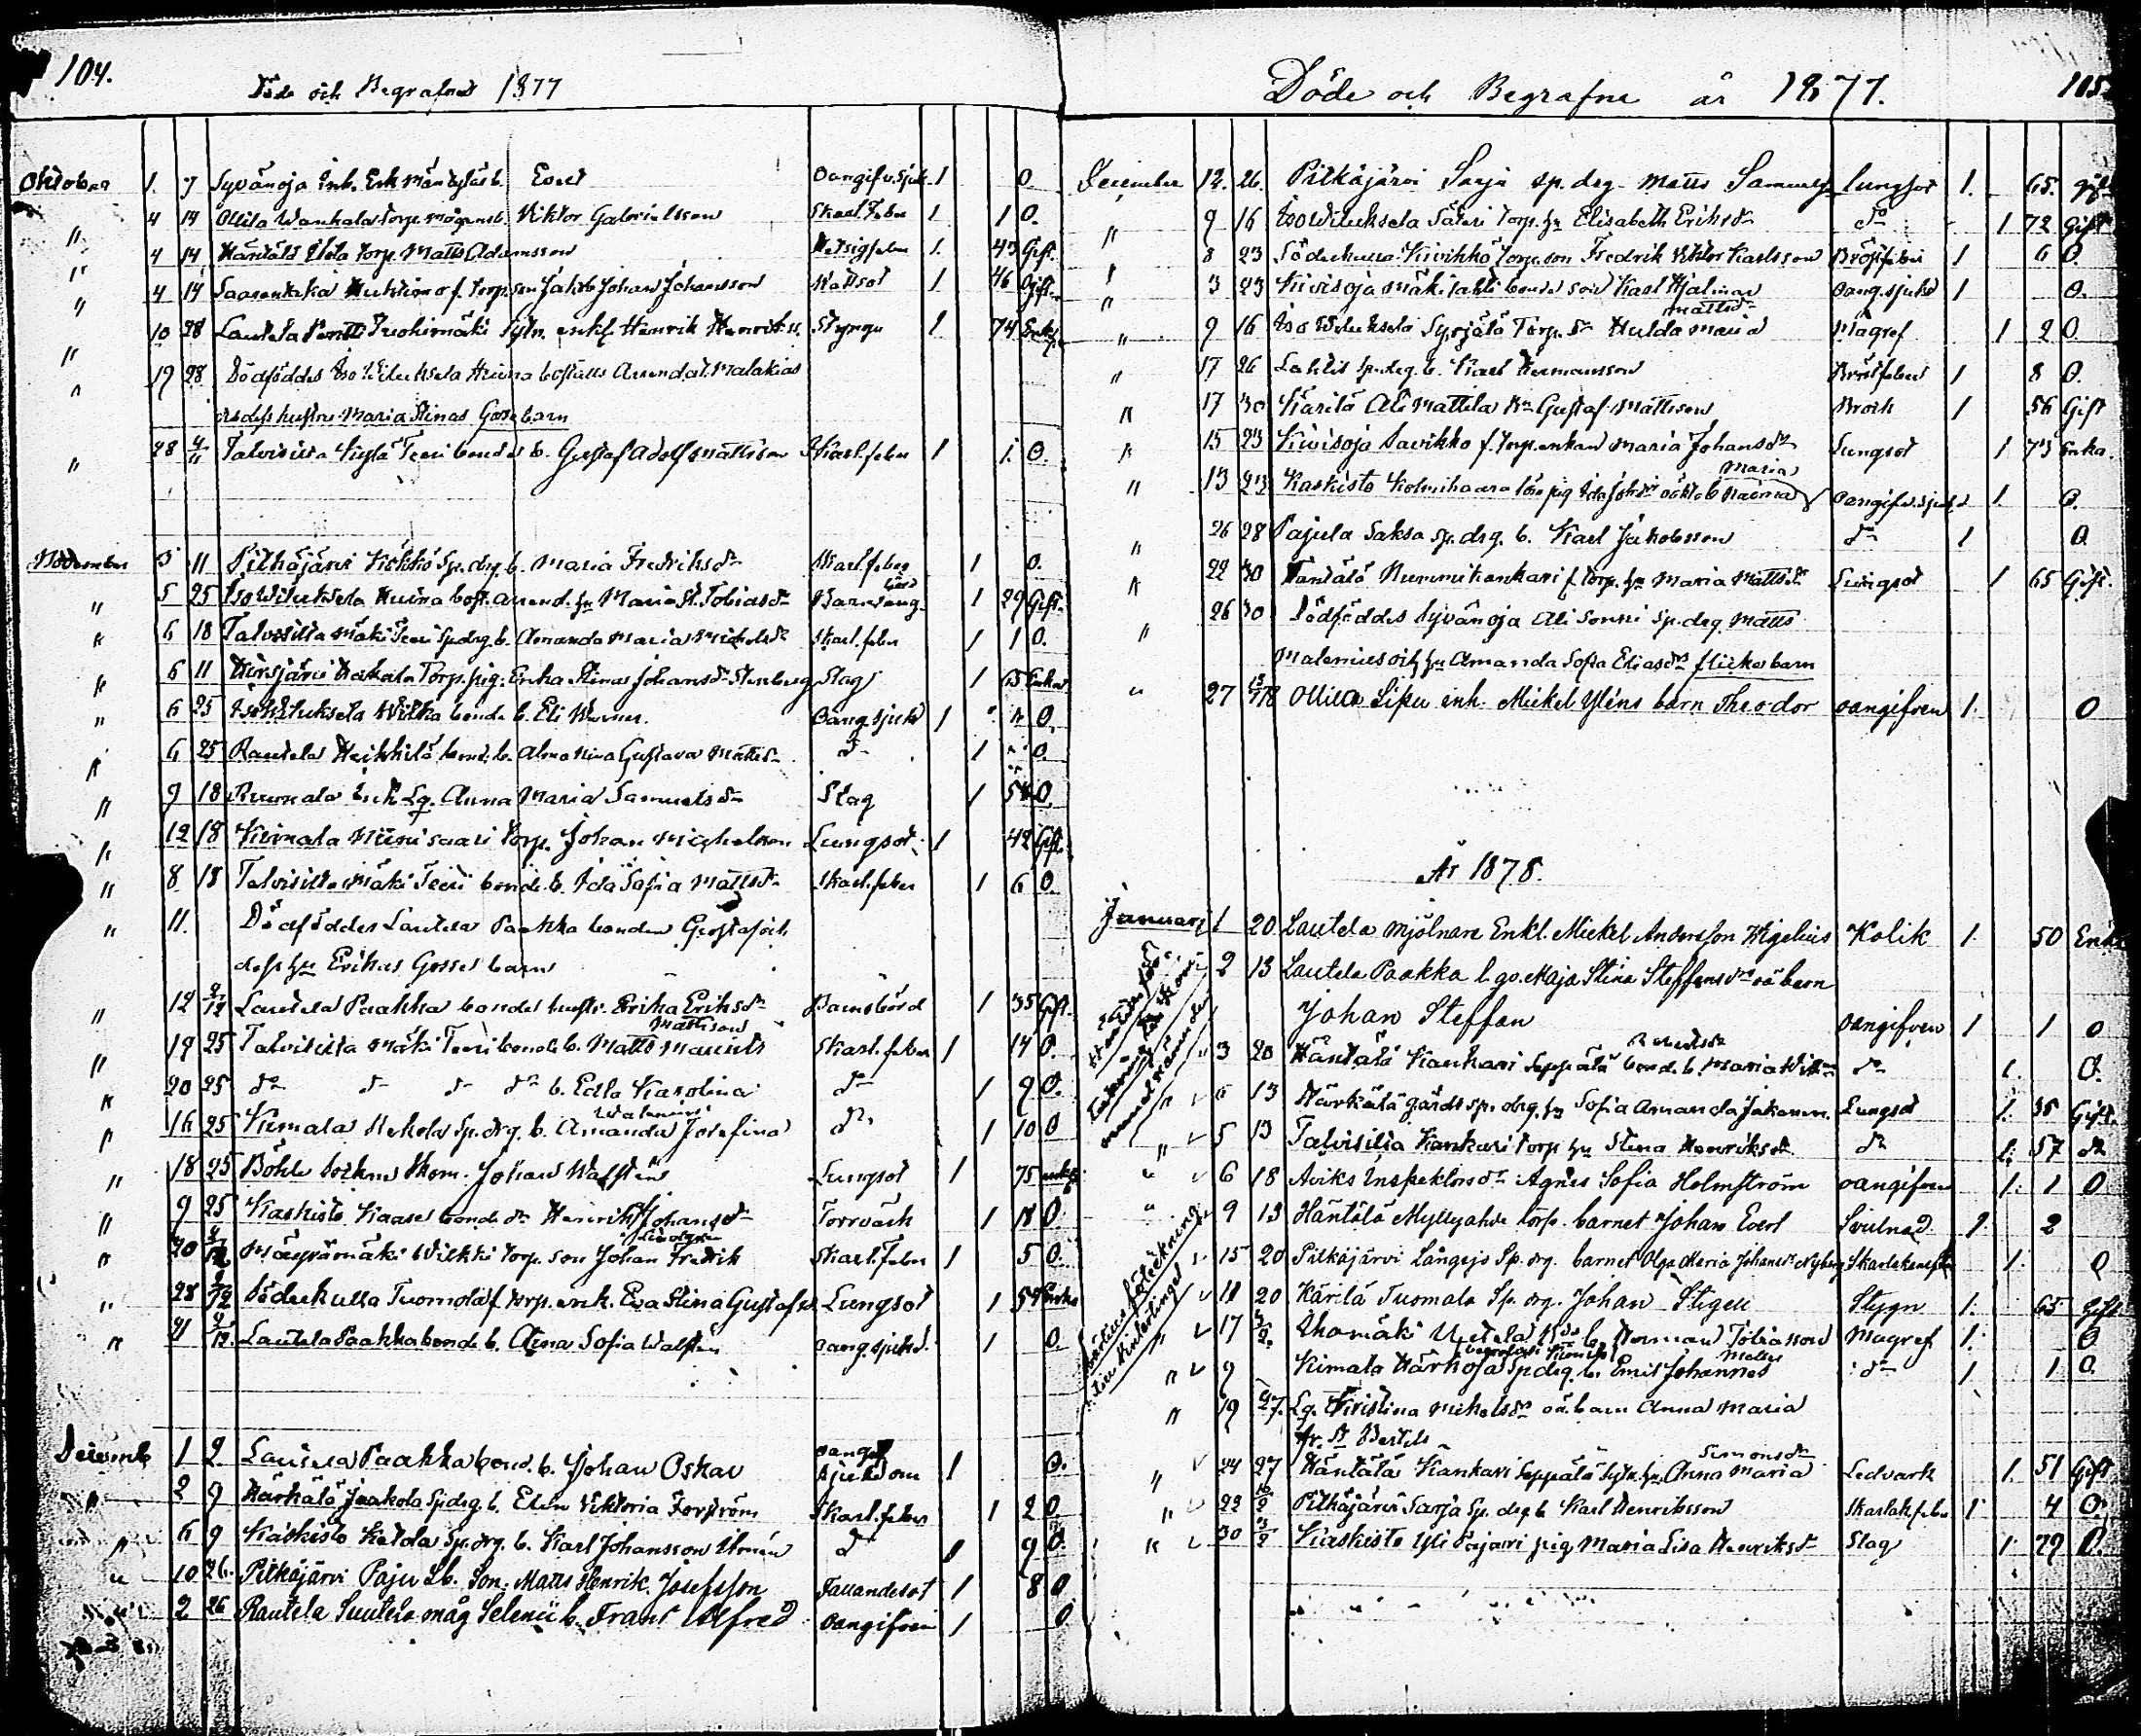 104.
Döde och Begrafned 1877
Oktober 1. 7 Syvänoja Inh. Erk Mäntyläs b. Evert Oangifv. Sjuk. 1 0.
" 4 14 Ollila Wanhala torp. mågens b. Viktor Gabrielsson Skarl. feber 1 1 0.
" 4 14 Häntälä torp. Matts Adamsson Hetsigfeber 1. 43 Gift.
" 4 14 f. torp. son Jakob Johan Johansson Wattsot 1 46 Gift.
" 10 28 Lautela Pentti Tuohimäki Sytn. enkl. Henrik Henriks. Styngn 1 74 Enkl.
" 19 28 Dödföddes Iso Wiluksela Huina boställs Arendat. Malakias
och dess hustru Maria Stinas Gosse barn
" 28 4/11 Talvisilta Teeri bondes b. Gustaf Adolf Mattsson Skarl. feber 1 1. 0.
November 5 11 Pitkäjärvi Kökkö Sp. drg. b. Maria Fredriksdr Skarl. feber 1 0.
" 5 25 Iso Wiluksela Huina bost. arend. hu Maria St. Tobiasdr Barnsäng 1 29 Gift.
" 6 18 Talvisilta Mäki Teeri Sp. drg. b. Amanda Maria Michelsdr Skarl. feber 1 1 0.
" 6 11 Hirsjärvi Torp. pig. Enka Stina Johansdr Stenberg Slag 1 65 Enka
" 6 25 Iso Wiluksela Wilka bonde b. Eli Werner. Oang sjukd 1 0.
" 6 25 Rautela Heikkilä bond. b. Alma Nina Gustava Mattsdr d- 1 0.
" 9 18 Ruonala Inh. Lg. Anna Maria Samuelsdr Slag 1 54 0.
" 12 18 Kiimala Niinisaari torp. Johan Michelsson Lungsot 1 42 Gift.
" 8 18 Talvisilta Mäki Teeri bonde b. Ida Sofia Mattsdr Skarl. feber 1 6 0.
" 11. Dödföddes Lautela Paakka bonden Gustaf och
dess hu Erikas Gosse barn
" 12 2/12 Lautela Paakka bondes hustr. Erika Eriksdr Barnsbörd 1 35 Gift.
" 19 25 Talvisilta Mäki Teeri bonde b. Matts Maurits Mattsson Skarl. feber 1 14 0.
" 20 25 dr d- d- dr b. Edla Karolina d- 1 9 0.
" 16 25 Kiimala Sp. drg. b. Amanda Josefina dr 1 10 0
" 18 25 Böhle sockne Skom. Johan Wallstén Lungsot 1 75 enkl.
" 9 25 Kaskisto Kaase bonde dr Henrik Johansdr Torrvärk 1 18 0.
" 20 2/12 Mäyrämäki Wilkki torp. son Johan Fredrik Skarl. feber 1 5 0.
" 28 9/12 Söderkulla Tuomola f. torp. enk. Eva Stina Gustafsdr Lungsot 1 Enka
" 21 9/12. Lautela Paakka bonde b. Alma Sofia Wallstén oang. sjukd. 1 0.
Decemb 1 2 Lautela Paakka bond. b. Johan Oskar oangif sjukdom 1 0.
" 2 9 Härkälä Jaakola Sp. drg. b. Elin Viktoria Forström Skarl. feber 1 2 0.
" 6 9 Kaskisto Sp. drg. b. Karl Johansson d 1 9 0.
" 10 26. Pitkäjärvi Paju Lb. Son. Matts Henrik Josefsson Fallandesot 1 8 0
2 26 Rautela Suutela måg Selenii b. Frans Alfred oangifven 1 0.
Döde och Begrafne år 1877.
105.
December 12. 26. Pitkäjärvi Sarja sp. drg. Matts Samuels. lungsot 1. 65. gift
" 9 16 Iso Wiluksela Säteri torp. hu Elisabeth Eriksdr d- 1 72 Gift
" 8 23 Söderkulla Kivikko torp. son Fredrik Viktor Karlsson Bröstfeber 1 6 0.
" 3 23 Kivisoja Mäkitahti bonde son Karl Hjalmar oang. sjukd 1 0.
" 9 16 Iso Wiluksela Syrjälä Torp. dr Hulda Maria Mattsdr Magref 1 2 0.
" 17 26 Lahtis Sp. drg. b. Karl Hermansson Bröstfeber 1 8 0.
" 17 30 Käritä Ali Mattila Bn Gustaf Mattsson Brock 1 56 Gift
" 15 23 Kivisoja Savikko f. torp. enkan Maria Johansdr Lungsot 1 73 Enka.
" 13 23 Kaskisto Kolmihaara lösa pig Ida Johdr oäkta b. Naima Maria oangifv. sjukd 1. 0.
" 26 28 Pajula Saksa sp. drg. b. Karl Jakobsson dr 1 0
" 22 30 Häntälä Nummikankari f. torp. hu Maria Mattsdr Lungsot 1 65 Gift.
" 26 30 Dödföddes Syvänoja Ali Sonni Sp. drg. Matts
Malenius och hu Amanda Sofia Eliasdr flicke barn
" 27 13/1 78 Ollila Sipu inh. Mickel Yléns barn Theodor oangifven 1. 0
År 1878.
Januari 1 20 Lautela mjölnare Enkl. Mickel Andersson Wigelius Kolik 1. 50 Enkl
2 13 Lautela Paakka l. go. Maja Stina Steffansdrs oä barn
Johan Steffan oangifven 1 1 0
" 3 20 Häntälä Kankari Seppälä bonde b. Maria dr 1. 0.
" 6 13 Härkälä gårds sp. drg. hu Sofia Amanda Lungsot 1. 35 Gift.
" 5 13 Talvisilta Kankari torp hu Stina Henriksdr. dr 1. 57 dr
" 6 18 Aviks Inspektors dr Agnes Sofia Holmström oangifven 1. 1 0
" 9 13 Häntälä Myllyahde torp. barnet Johan Evert Svulnad 1. 2
15 20 Pitkäjärvi Långsjö Sp. drg. barnet Olga Maria Johansdr Nyberg 1. 0
18 20 Käritä Tuomala Sp. drg. Johan Stigell Stygn 1. 65 Gift
" 17 3/2. Ihamäki b. Herman Tobiasson Magref 1. 0
" 9 Kiimala Härkoja Sp. drg. b. Emil Johannes d- 1 1 0.
" 19 27. Lg. Kristina Mickelsdr oä. barn Anna Maria
fr. St Bertils
" 24 27 Häntälä Kankari Seppälä Sytn. hu Anna Maria Simonsdr Ledvärk 1. 51 Gift
" 22 10/2 Pitkäjärvi Sarja Sp. drg b Karl Henriksson Skarlak. feber 1 4 0.
" 30 3/2 Kaskisto Yli Pajari pig Maria Lisa Henriksdr Slag 1 29 0.